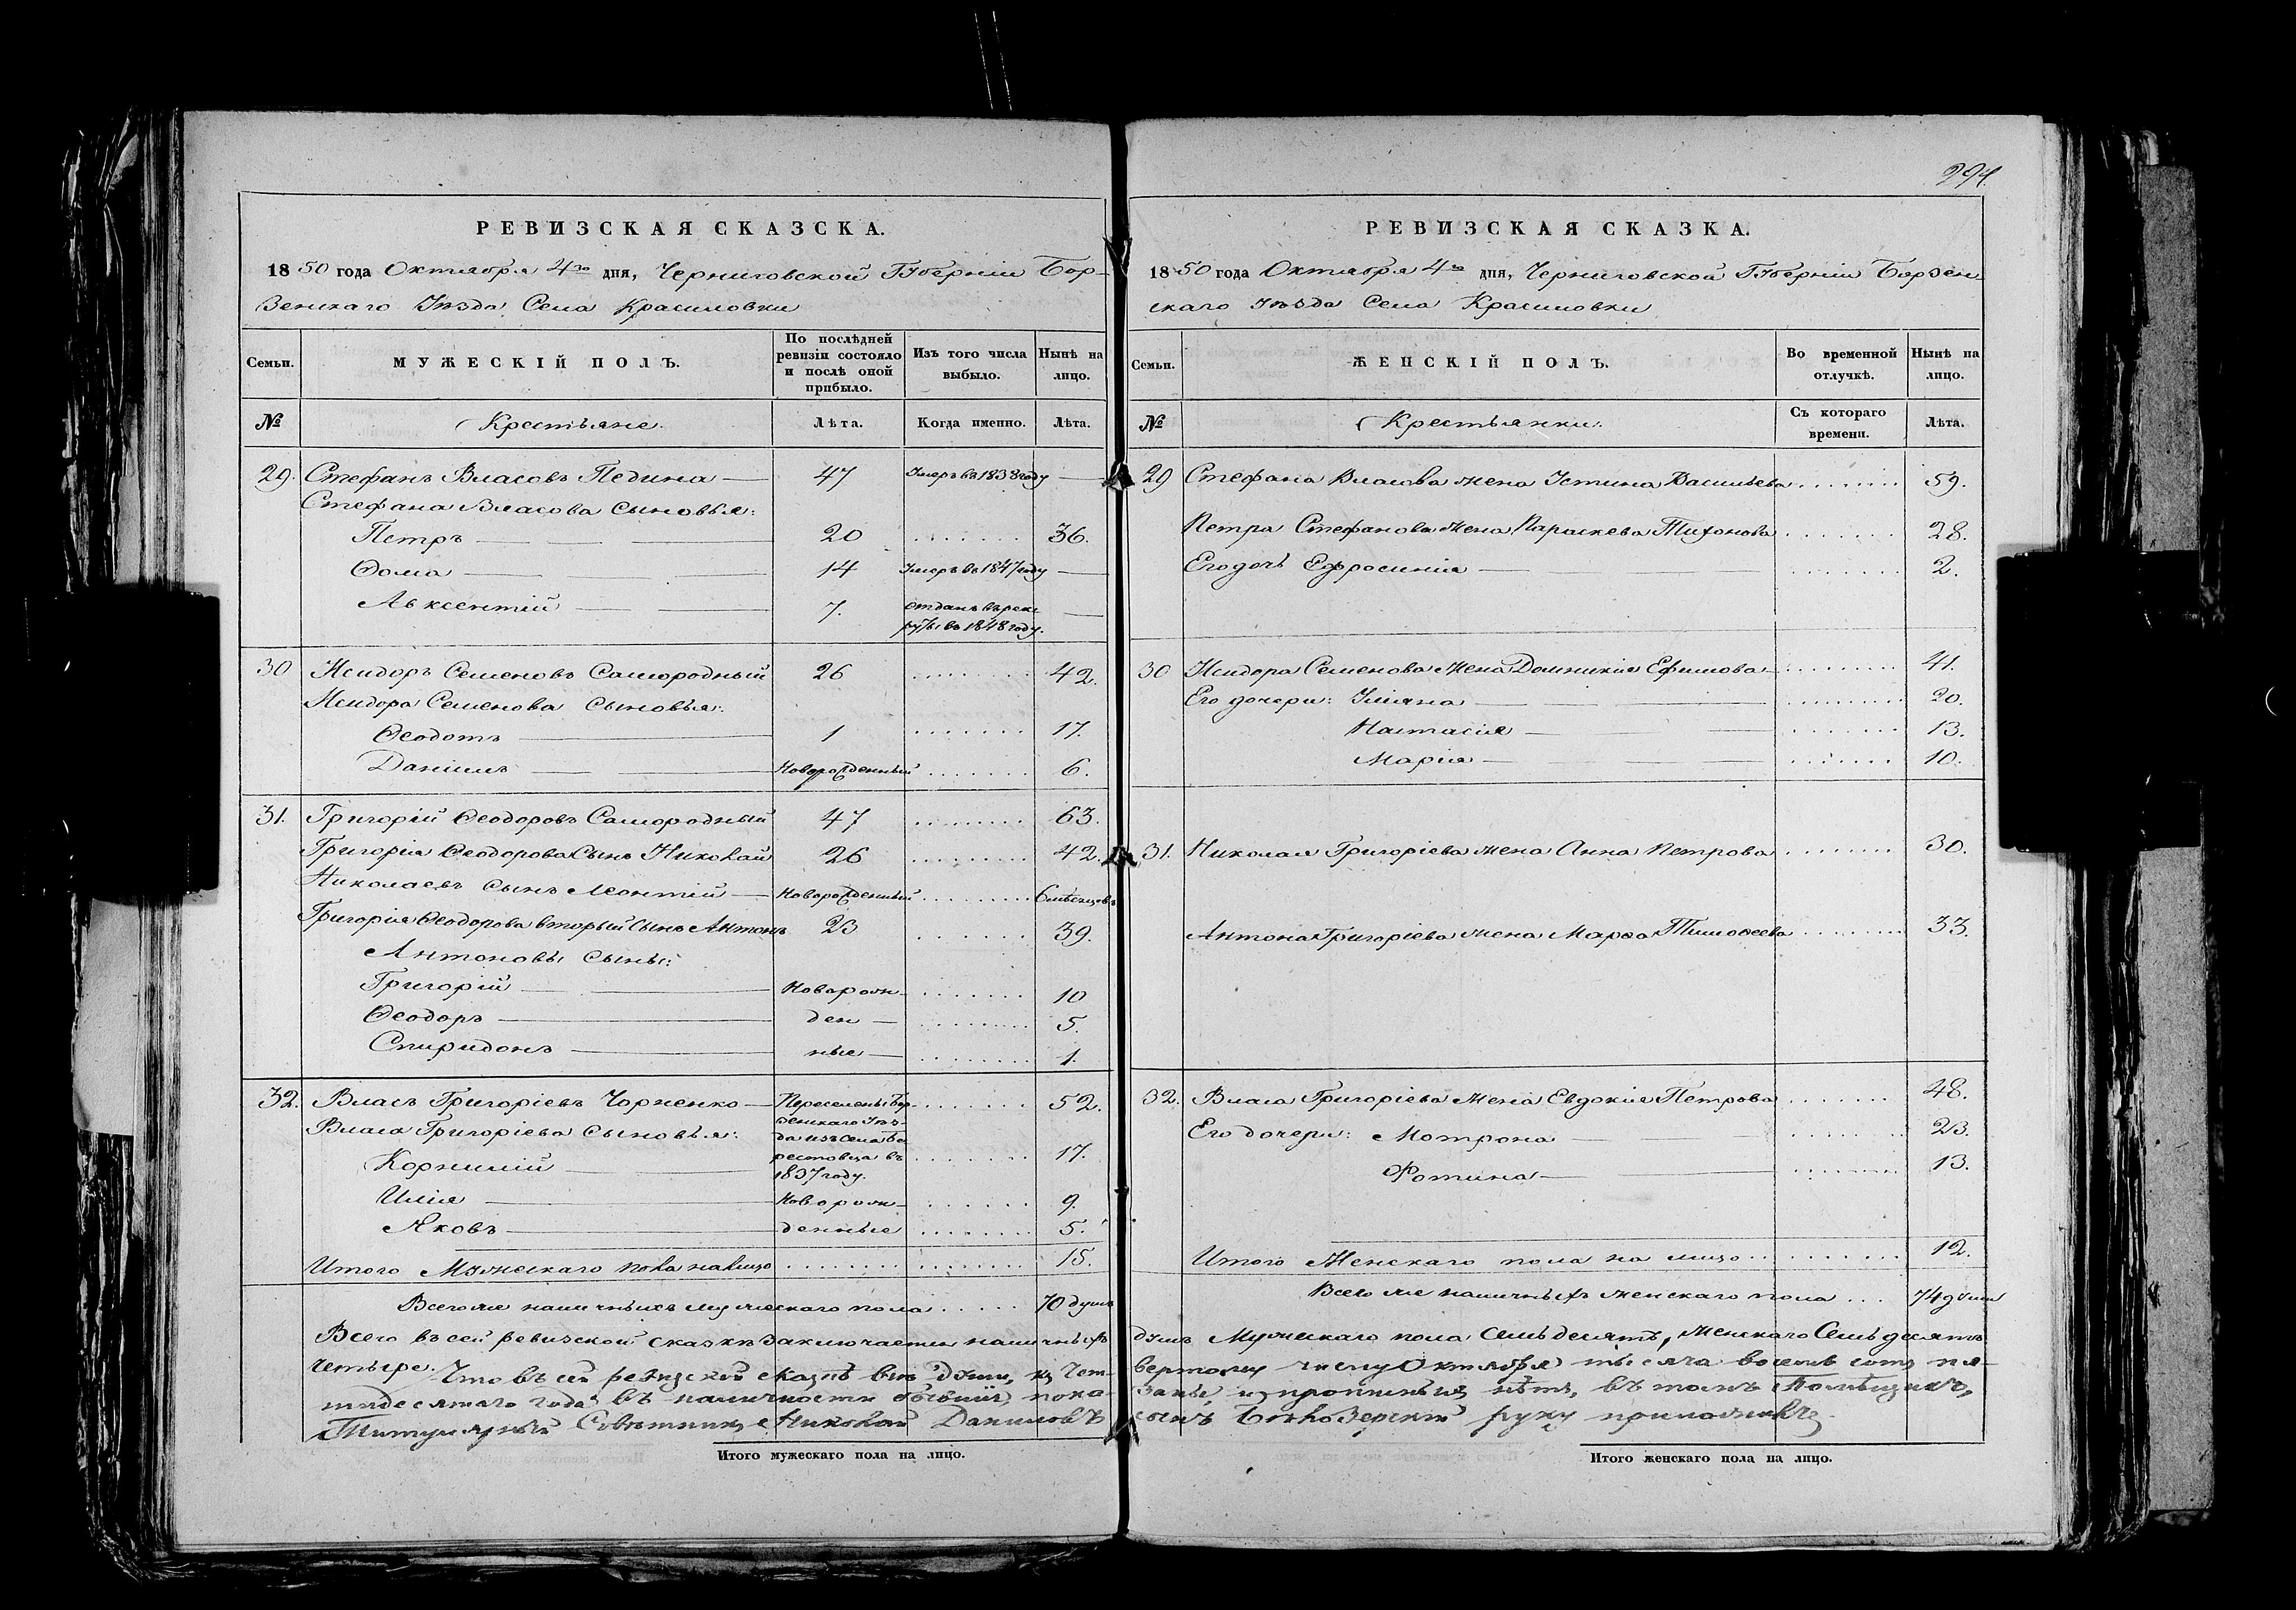 РЕВИЗСКАЯ СКАЗСКА.
1850 года Октября 4го дня, Черниговской Губерніи Бор-
зенскаго Уѣзда Села Красиловки
Семьи. МУЖЕСКІЙ ПОЛЪ. По послѣдней ревизіи состояло и послѣ оной прибыло. Изъ того числа выбыло. Нынѣ на лицо.
№ Крестьяне. Лѣта. Когда именно. Лѣта.
29. Стефанъ Власовъ Педина 47 Умеръ въ 1838 году —
Стефана Власова сыновья:
Петръ 20 36.
Ѳома 14 Умеръ въ 1847 году —
Авксентій 7. отданъ въ рек-
руты въ 1848 году. —
30 Исидоръ Семеновъ Самородный 26 42.
Исидора Семенова сыновья:
Ѳеодотъ 1 17.
Даніилъ Новорожденный 6.
31. Григорій Ѳеодоровъ Самородный 47 63.
Григорія Ѳеодорова Сынъ Николай 26 42.
Николаевъ Сынъ Леонтій Новорожденный 6 мѣсяцовъ
Григорія Ѳеодорова вторый Сынъ Антонъ 23 39.
Антоновы Сыны:
Григорій Новорож- 10
Ѳеодоръ ден 5.
Спиридонъ ные 1.
32. Власъ Григоріевъ Чорненко Переселены Бор- 52.
зенскаго Уѣз-
Власа Григоріева сыновья: да изъ села Бе-
рестовца въ
Корнилій 1837 году. 17.
Илія Новорож- 9.
Яковъ денные 5.
Итого Мужескаго пола налицо 15.
Всего же наличныхъ мужескаго пола 70 душъ
Всего въ сей ревизской сказкѣ заключается наличныхъ
четыре. Что въ сей ревизской сказкѣ всѣ души, къ Чет-
пидесятаго года въ наличности бывшіе, пока-
Титулярный Совѣтникъ Николай Даниловъ
Итого мужескаго пола на лицо.
394.
РЕВИЗСКАЯ СКАЗКА.
1850 года Октября 4го дня, Черниговской Губерніи Борзен-
скаго Уѣзда Села Красиловки
Семьи. ЖЕНСКІЙ ПОЛЪ. Во временной отлучкѣ. Нынѣ на лицо.
№ Крестьянки. Съ котораго времени. Лѣта.
29 Стефана Власова жена Устина Васильева 59.
Петра Стефанова жена Параскева Тихонова 28.
Его дочь Ефросинія 2.
30 Исидора Семенова жена Домникія Ефимова 41.
Его дочери: Уліяна 20.
Настасія 13.
Марія 10.
31. Николая Григоріева жена Анна Петрова 30.
Антона Григоріева жена Марѳа Тимоѳеева 33.
32. Власа Григоріева жена Евдокія Петрова 48.
Его дочери: Мотрона 23.
Фотина 13.
Итого Женскаго пола на лицо 12.
Всего же наличныхъ женскаго пола 74 души
душъ Мужескаго пола семьдесятъ, женскаго Семьдесятъ
вертому числу Октября тысяча восемь сотъ пя-
заны, и прописныхъ нѣтъ, въ томъ Помѣщикъ,
сынъ руку приложилъ
Итого женскаго пола на лицо.